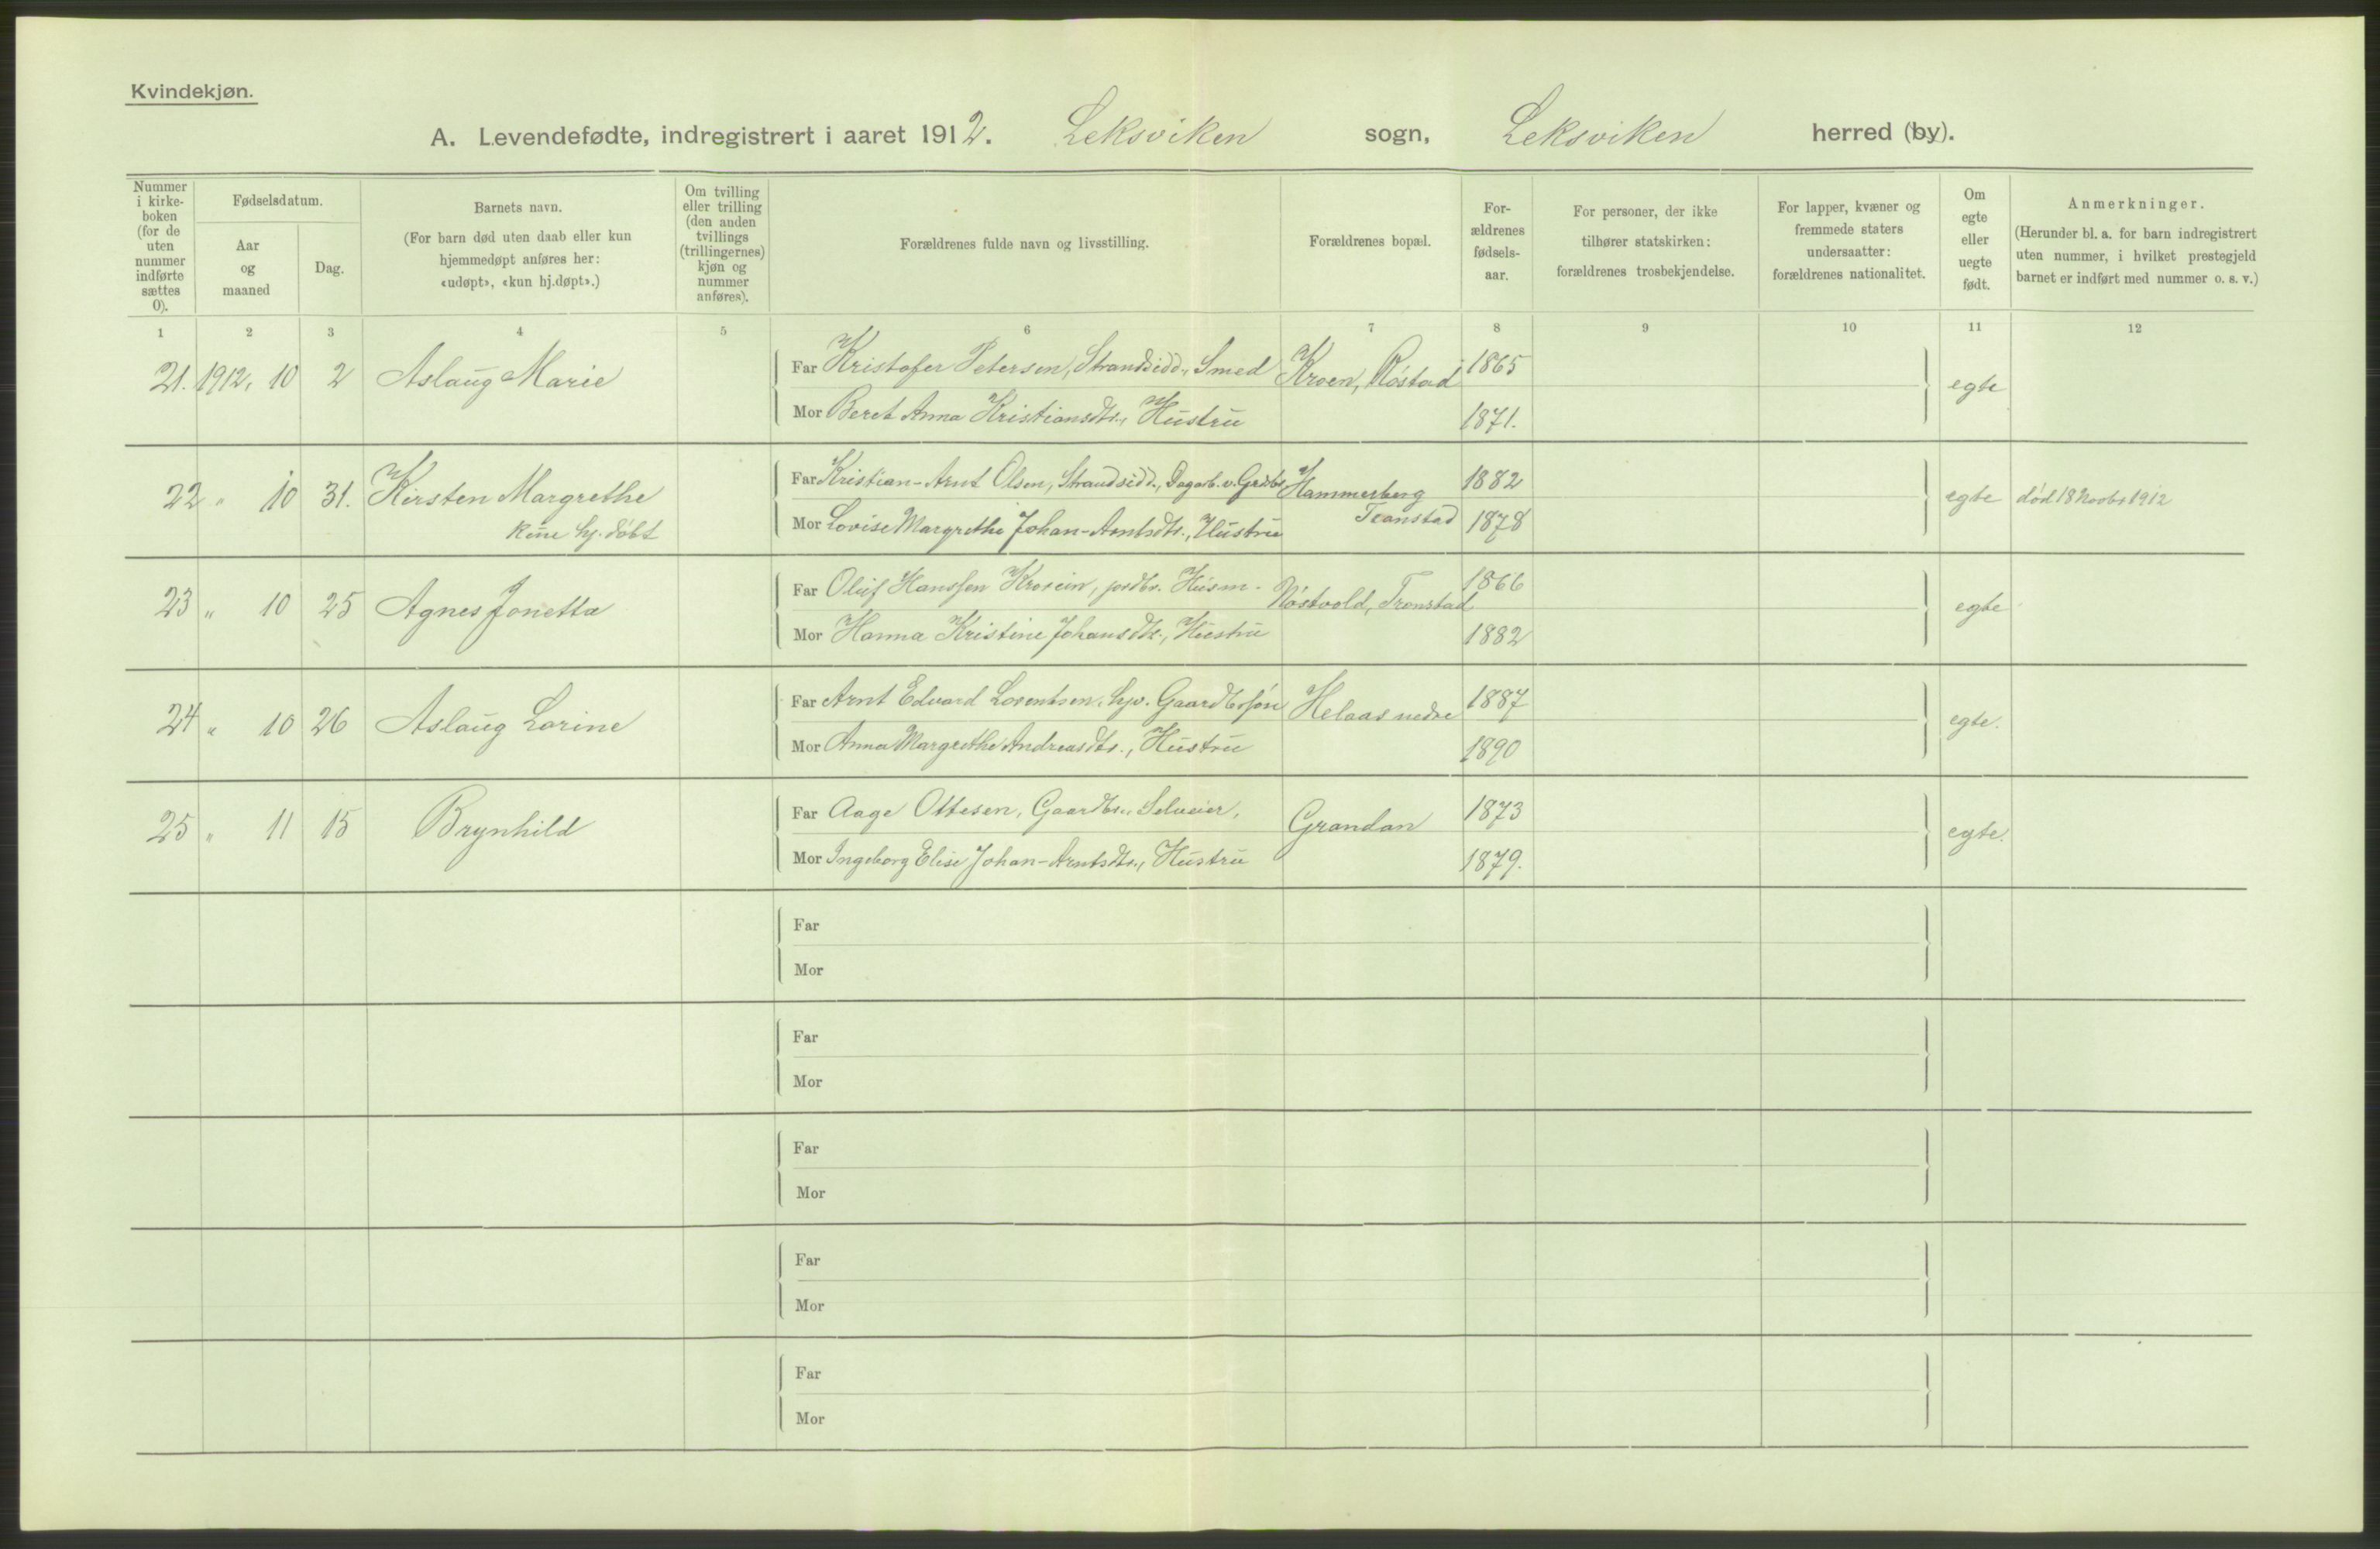 Kvindekjøn.
A. Levendefødte, indregistrert i aaret 1912. Leksviken sogn, Leksviken herred (by).
Nummer i kirke-boken (for de uten nummer indførte sættes 0).
Fødselsdatum.
Aar og maaned
Dag.
Barnets navn.
(For barn død uten daab eller kun hjemmedøpt anføres her: «udøpt», «kun hj.døpt».)
Om tvilling eller trilling (den anden tvillings (trillingernes) kjøn og nummer anføres).
Forældrenes fulde navn og livsstilling.
Forældrenes bopæl.
For-ældrenes fødsels-aar.
For personer, der ikke tilhører statskirken: forældrenes trosbekjendelse.
For lapper, kvæner og fremmede staters undersaatter: forældrenes nationalitet.
Om egte eller uegte født.
Anmerkninger.
(Herunder bl. a. for barn indregistrert uten nummer, i hvilket prestegjeld barnet er indført med nummer o. s. v.)
1 2 3 4 5 6 7 8 9 10 11 12
21. 1912, 10 2 Aslaug Marie Far Kristofer Petersen, Strandsidd., Smed Kroen, Røstad 1865 egte
Mor Beret Anna Kristiansdtr., Hustru 1871.
22 " 10 31. Kirsten Margrethe Far Kristian-Arnt Olsen, Strandsidd., Dagarb. v. Grdbr. Hammerberg 1882 egte død 18 Novbr 1912
kune hj. døbt Mor Lovise Margrethe Johan-Arntsdtr., Hustru Transtad 1878
23 " 10 25 Agnes Jonetta Far Oluf Hanssen Kroxein, jordbr. Husm. Røstvold, Tronstad 1866 egte
Mor Hanna Kristine Johansdtr., Hustru 1882
24 " 10 26 Aslaug Lorine Far Arnt Edvard Lorentsen, hjv. Gaardbrsøn Helaas nedre 1887 egte.
Mor Anna Margrethe Andreasdtr., Hustru 1890
25 " 11 15 Brynhild Far Aage Ottesen, Gaardbr., Selveier, Grandan 1873 egte.
Mor Ingeborg Elise Johan-Arntsdtr., Hustru 1879.
Far
Mor
Far
Mor
Far
Mor
Far
Mor
Far
Mor